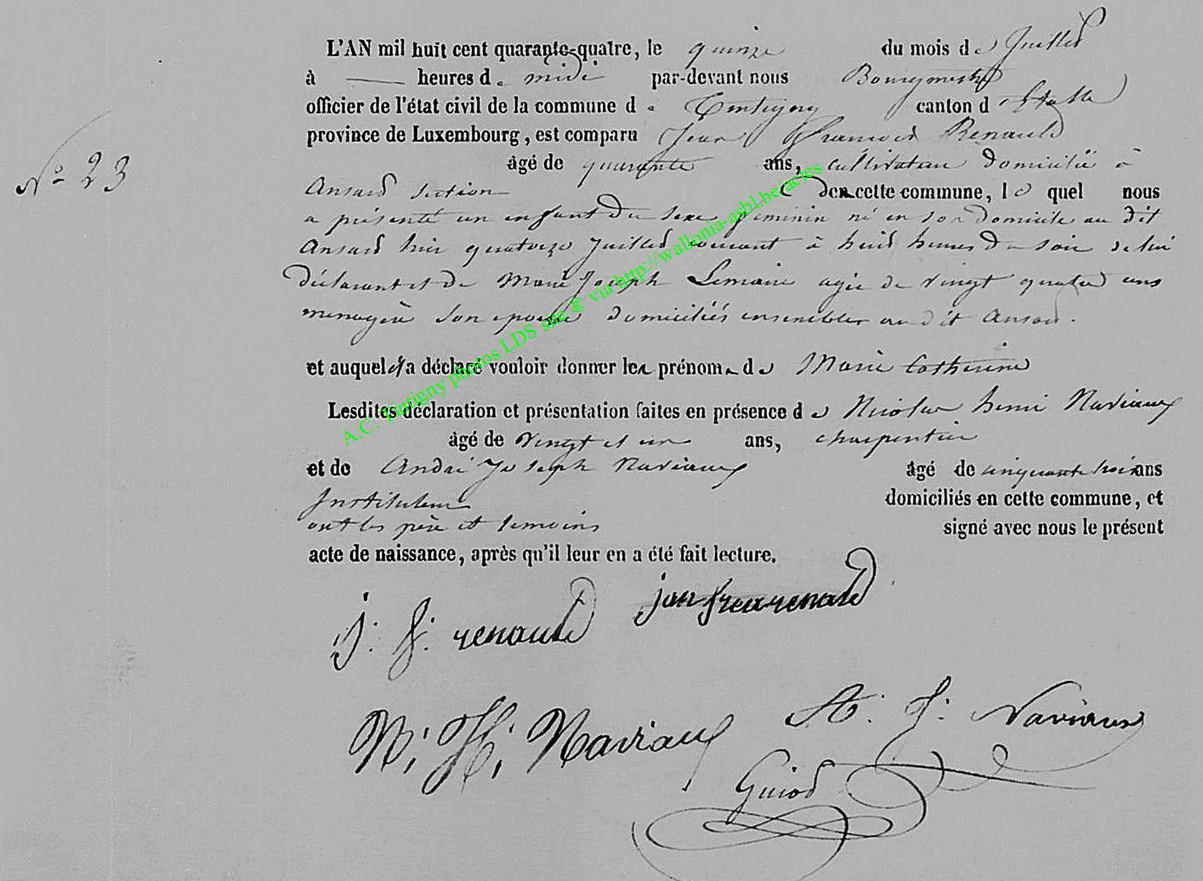 L'AN mil huit cent quarante-quatre, le quinze du mois de Juillet
à — heures de midi par-devant nous Bourgmestre
officier de l'état civil de la commune de Tintigny canton d'Etalle
province de Luxembourg, est comparu Jean François Renauld
Nº 23
âgé de quarante ans, cultivateur domicilié à
Ansart section de cette commune, le quel nous
a présenté un enfant du sexe feminin né en son domicile au dit
Ansart hier quatorze Juillet courant à huit heures du soir de lui
déclarant et de Marie Joseph Lemaire agée de vingt quatre ans
menagère son epouse domiciliés ensembles au dit Ansart.
et auquel il a déclaré vouloir donner les prénoms de Marie Catherine
Lesdites déclaration et présentation faites en présence de Nicolas henri Naviaux
âgé de vingt et un ans, charpentier
et de André Joseph Naviaux âgé de cinquante trois ans
Instituteur domiciliés en cette commune, et
ont les père et temoins signé avec nous le présent
acte de naissance, après qu'il leur en a été fait lecture.
j: f: renauld
N: H: Naviaux A: J: Naviaux
Guiod
A.C. Tintigny photos LDS site ® via http://wallonia-asbl.be/actes